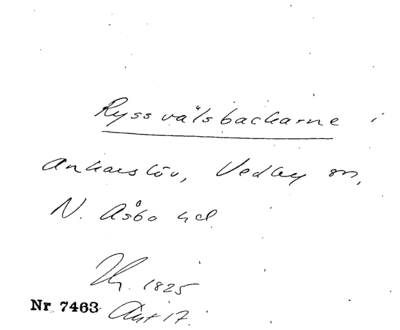 Ryssvälsbackarne i
Ankarslöv, Vedby sn,
N. Åsbo hd.
1825
Nr 7463 Akt 17.